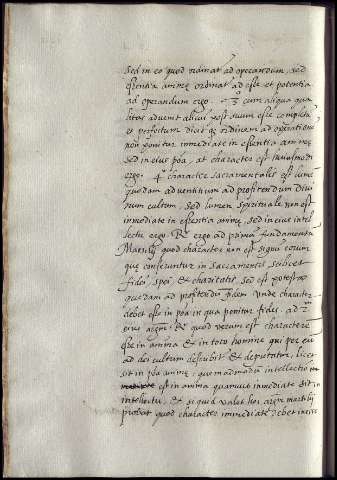 sed in eo quod ordinat ad operandum, sed
essentia animę ordinat ad esse et potentia
ad operandum ergo. 3º cum aliqua qua
litas advenit alicui post suum esse completũ
et perfectum dicit ordinem ad operationẽ
non ponitur immediate in essentia animę
sed in eius poª, at character est huiusmodi
ergo. 4º character sacramentalis est lumẽ
quoddam adventitium ad profitendum divi
num cultum, sed lumen spirituale non est
immediate in essentia animę, sed in eius intel
lectu ergo. Rº ergo ad primũ fundamentũ
Marsilij quod character non est signũ eorum
quę conferuntur in sacramentis scilicet
fidei, spei, et charitatis sed est potestas
quędam ad profitendũ fidem. unde character
debet esse in poª in qua ponitur fides. ad 2
eius argm̃. Rº quod verum est characterẽ
esse in anima et in toto homine qui per eũ
ad dei cultum et deputatur, licet
sit in poª animę, quemadmodũ intellectio
est in anima quamvis immediate sit in
intellectu, et si quid valet hoc argm̃ marsilij
probat quod character immediate debet